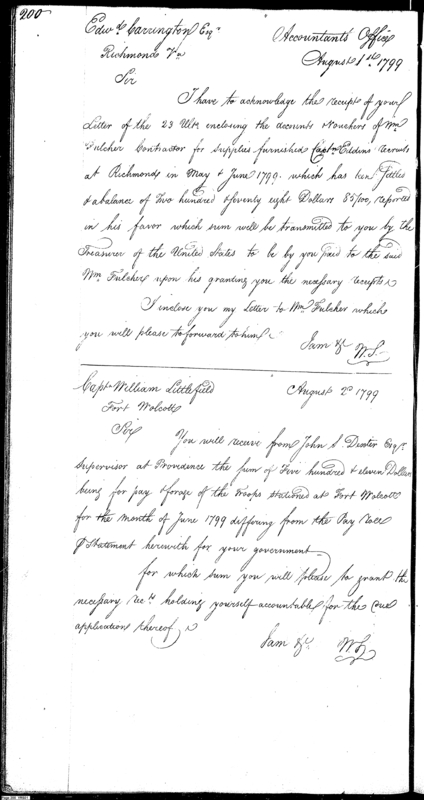 200
Edwd. Carrington Esqr.
Accountants Office
Richmond Va
August 1st. 1799
Sir
I have to acknowledge the receipt of your
Letter of the 23 Ulto. enclosing the accounts & Vouchers of Wm.
Fulcher Contractor for Supplies furnished Captn. Eddins recruits
at Richmond in May & June 1799. which has been Settled
& a balance of Two hundred & Seventy eight Dollars 85/100, reported
in his favor which sum will be transmitted to you by the
Treasurer of the United States to be by you paid to the said
Wm. Fulcher upon his granting you the necessary receipts
I inclose you my Letter to Wm. Fulcher which
you will please to forward to him
I am &c
W. S.
Capt. William Littlefield
August 2d 1799
Fort Wolcott
Sir
You will receive from John S. Dexter Esqr.
Supervisor at Providence the sum of Five hundred & eleven Dollars
being for pay & forage of the Troops stationed at Fort Wolcott
for the month of June 1799 differing from the Pay Roll
Statement herewith for your government
for which sum you will please to grant the
necessary recets. holding yourself accountable for the due
application thereof
I am &c.
W S